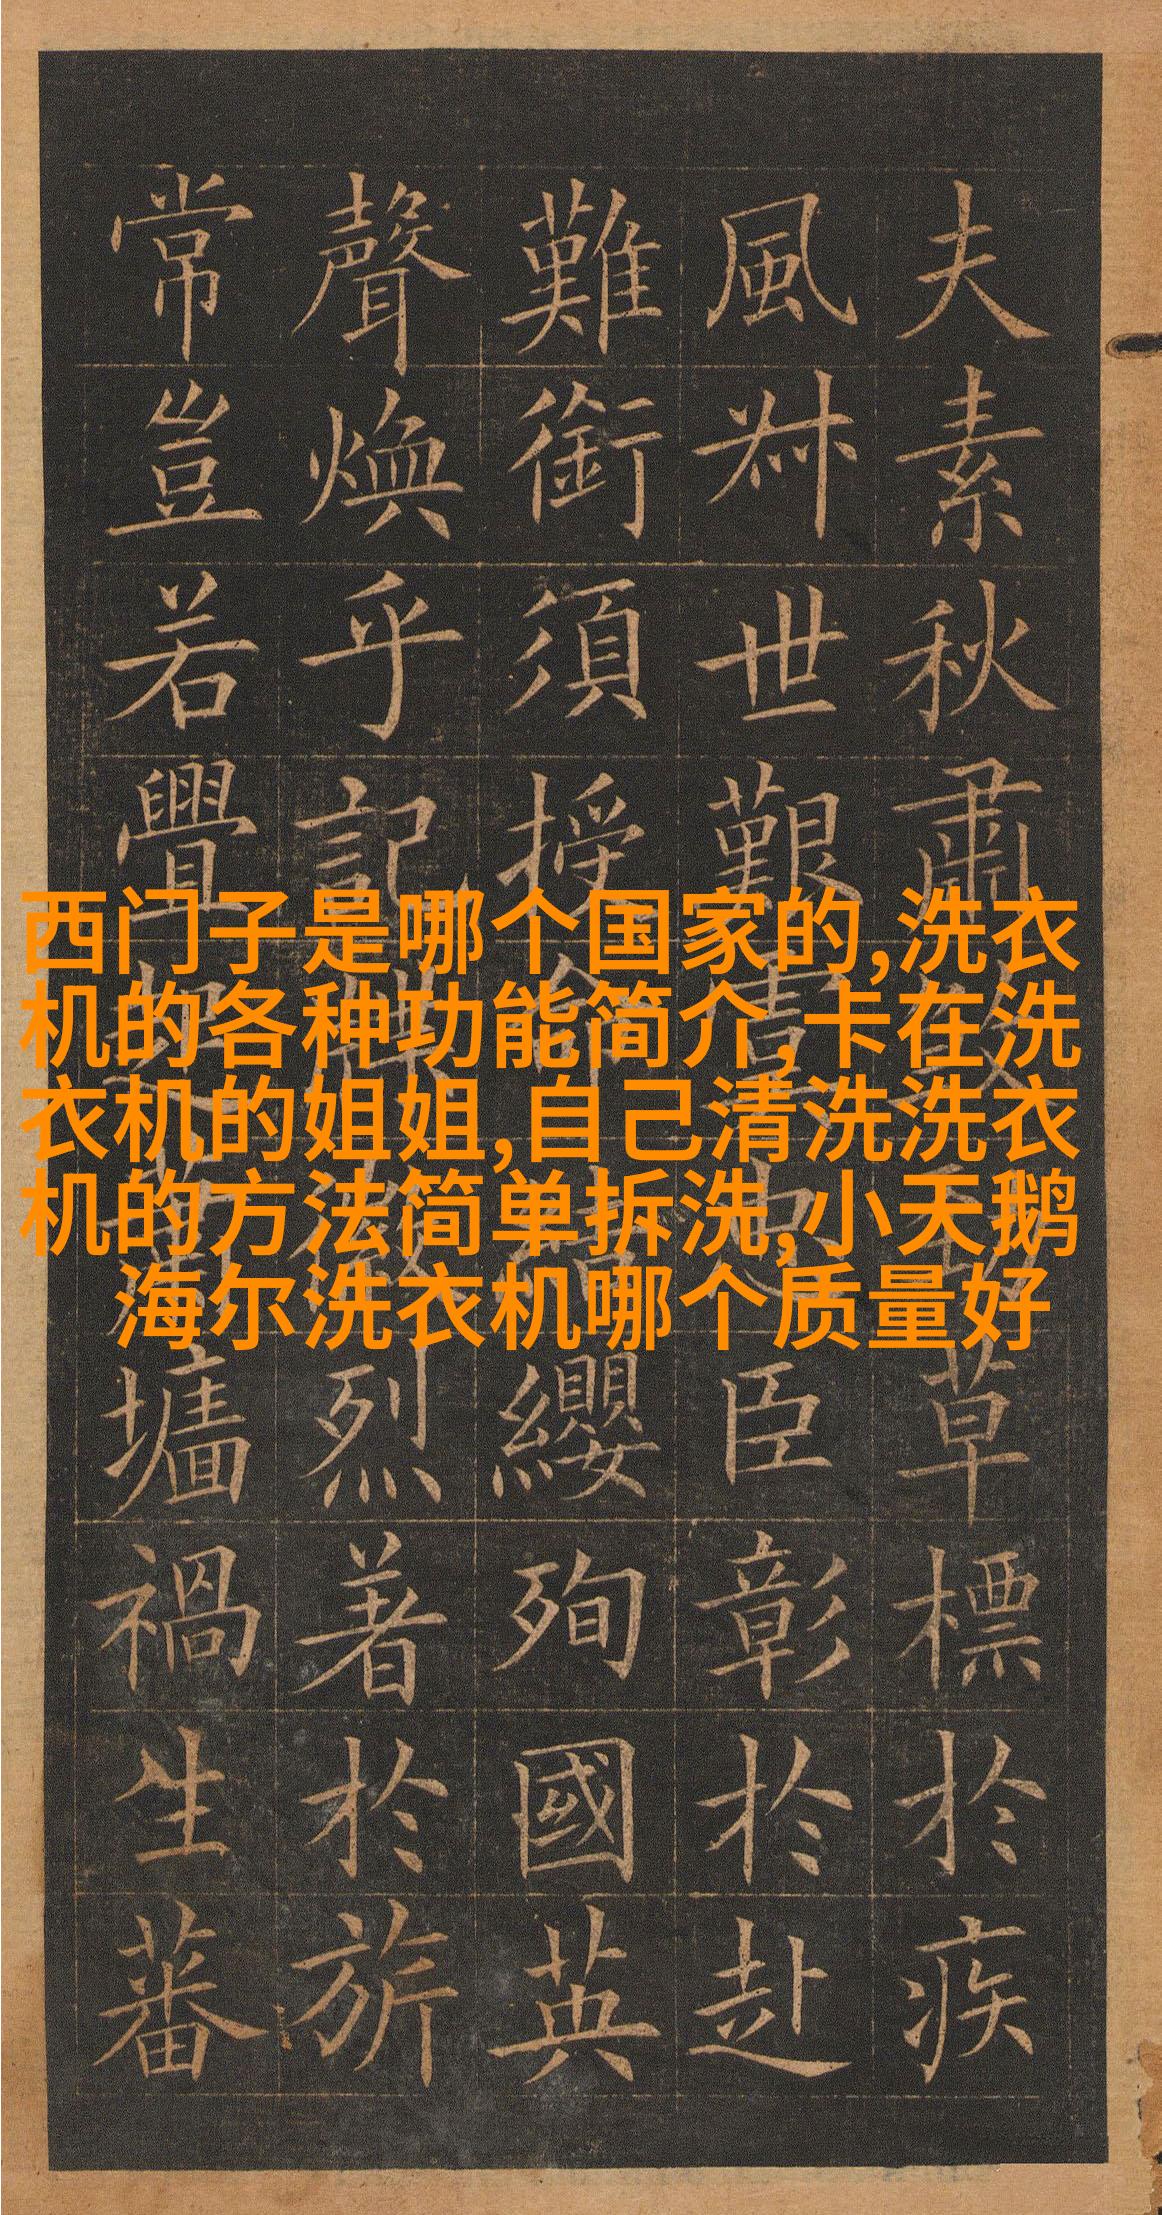 夫素秋肅草標於疾
風叔世艱臣彰於赴
難銜須授纓殉國英
聲煥乎記烈著於旂
常豈若舋墻禍生蕃
西门子是哪个国家的,洗衣
机的各种功能简介,卡在洗
衣机的姐姐,自己清洗洗衣
机的方法简单拆洗,小天鹅
海尔洗衣机哪个质量好